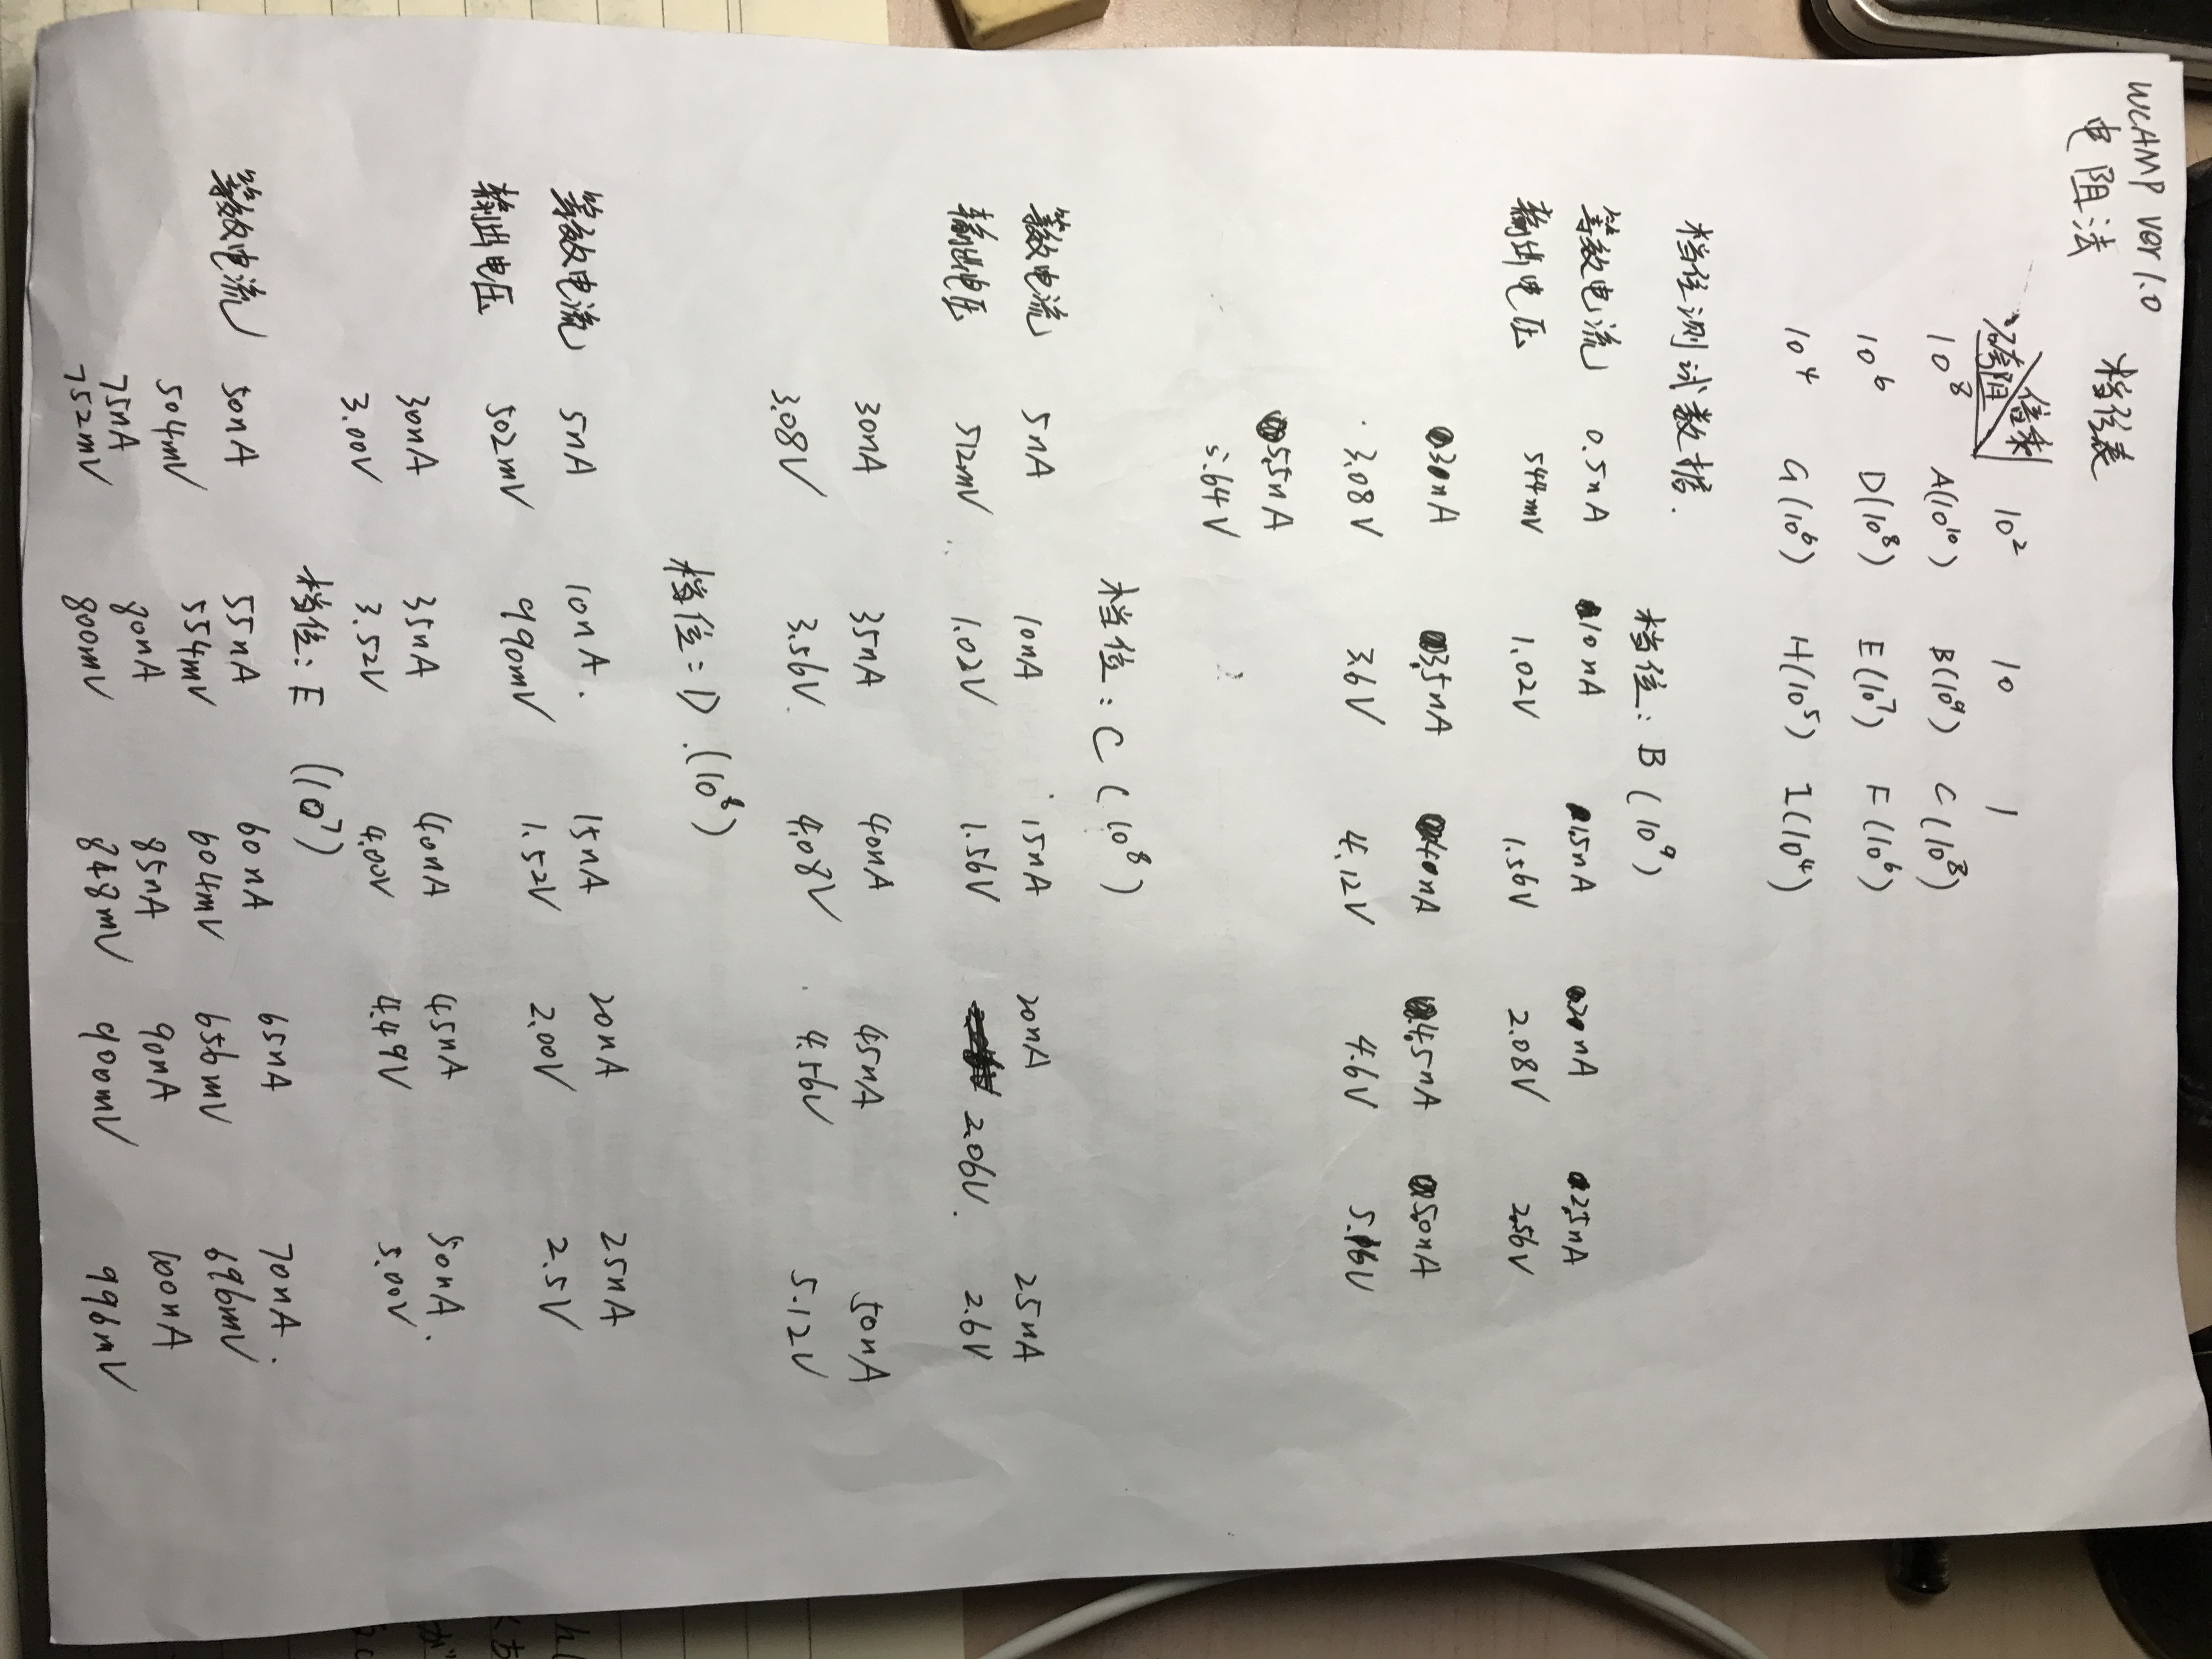 WCAMP Ver 1.0
电阻法
档位表
跨阻 倍乘 10² 10 1
10⁸ A(10¹⁰) B(10⁹) C(10⁸)
10⁶ D(10⁸) E(10⁷) F(10⁶)
10⁴ G(10⁶) H(10⁵) I(10⁴)
档位测试数据.
档位: B (10⁹)
等效电流 0.5nA 1.0nA 1.5nA 2.0nA 2.5nA
输出电压 544mV 1.02V 1.56V 2.08V 2.56V
3.0nA 3.5nA 4.0nA 4.5nA 5.0nA
3.08V 3.6V 4.12V 4.6V 5.16V
5.5nA
5.64V
档位: C (10⁸)
等效电流 5nA 10nA 15nA 20nA 25nA
输出电压 512mV 1.02V 1.56V 2.06V. 2.6V
30nA 35nA 40nA 45nA 50nA
3.08V 3.56V. 4.08V 4.56V 5.12V
档位: D.(10⁸)
等效电流 5nA 10nA. 15nA 20nA 25nA
输出电压 502mV 990mV 1.52V 2.00V 2.5V
30nA 35nA 40nA 45nA 50nA.
3.00V 3.52V 4.00V 4.49V 5.00V
档位: E (10⁷)
等效电流 50nA 55nA 60nA 65nA 70nA.
504mV 554mV 604mV 656mV 696mV.
75nA 80nA 85nA 90nA 100nA
752mV 800mV 848mV 900mV 996mV